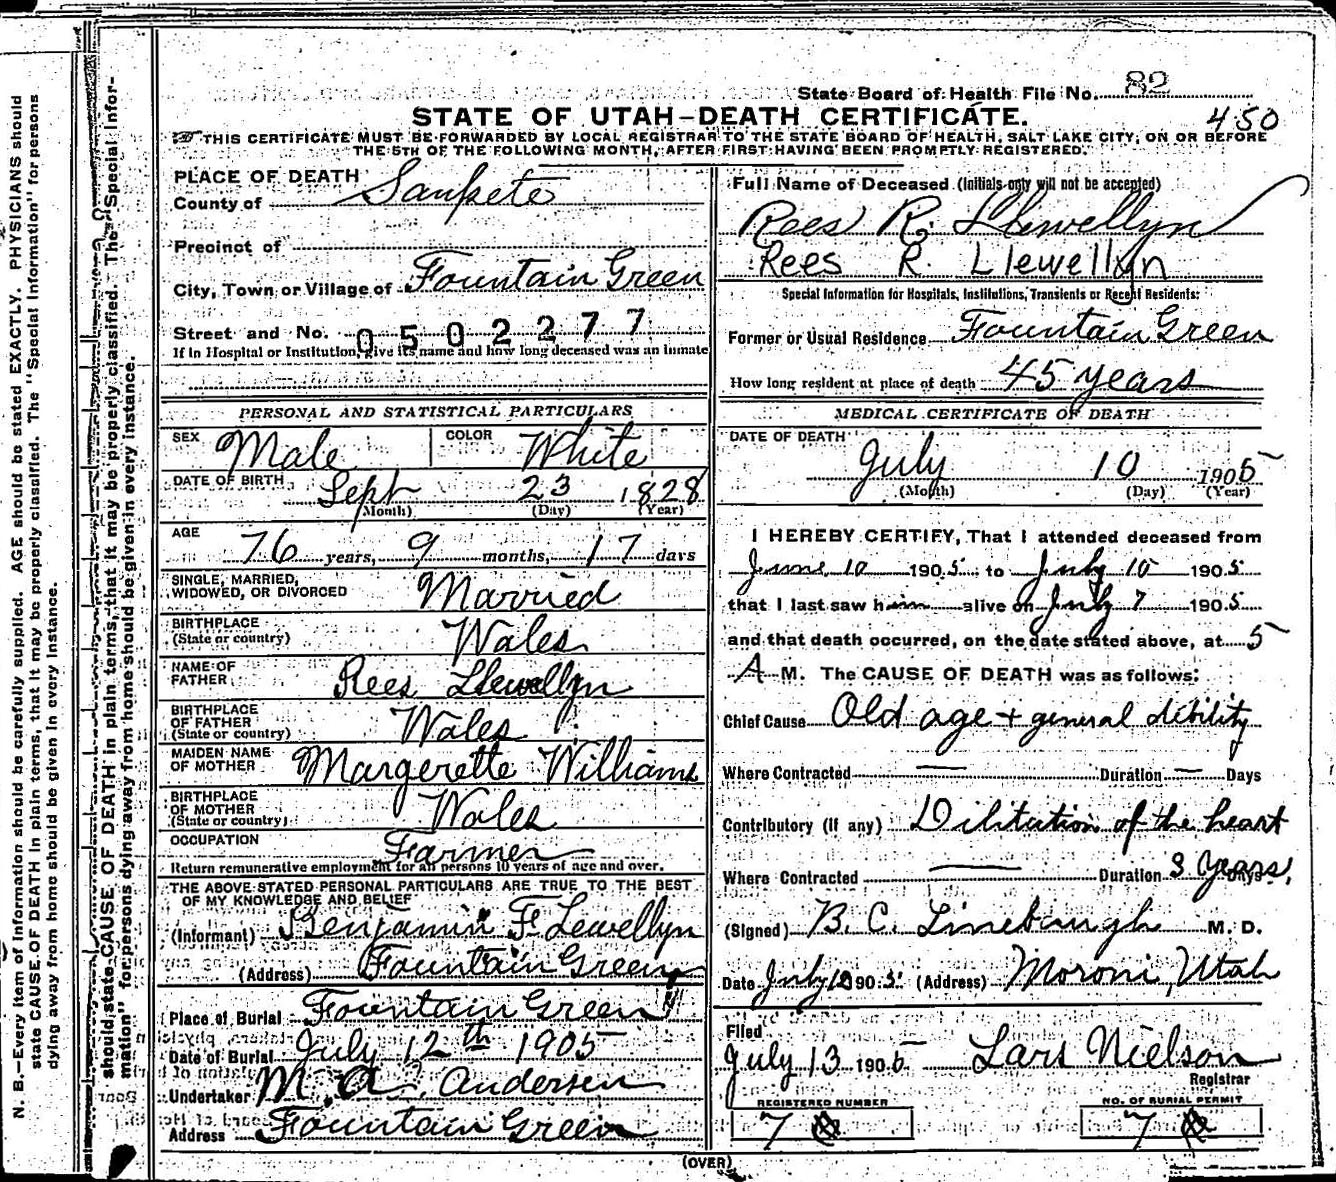 State Board of Health File No. 82
450
STATE OF UTAH—DEATH CERTIFICATE.
THIS CERTIFICATE MUST BE FORWARDED BY LOCAL REGISTRAR TO THE STATE BOARD OF HEALTH, SALT LAKE CITY, ON OR BEFORE
THE 5TH OF THE FOLLOWING MONTH, AFTER FIRST HAVING BEEN PROMPTLY REGISTERED.
PLACE OF DEATH
County of Sanpete
Precinct of
City, Town or Village of Fountain Green
Street and No. 0502277
If in Hospital or Institution, give its name and how long deceased was an inmate
PERSONAL AND STATISTICAL PARTICULARS
SEX Male COLOR White
DATE OF BIRTH Sept 23 1828
(Month) (Day) (Year)
AGE 76 years, 9 months, 17 days
SINGLE, MARRIED,
WIDOWED, OR DIVORCED Married
BIRTHPLACE
(State or country) Wales
NAME OF
FATHER Rees Llewellyn
BIRTHPLACE
OF FATHER
(State or country) Wales
MAIDEN NAME
OF MOTHER Margerette Williams
BIRTHPLACE
OF MOTHER
(State or country) Wales
OCCUPATION Farmer
Return remunerative employment for all persons 10 years of age and over.
THE ABOVE STATED PERSONAL PARTICULARS ARE TRUE TO THE BEST
OF MY KNOWLEDGE AND BELIEF
(Informant) Benjamin F. Lewellyn
(Address) Fountain Green
Place of Burial Fountain Green
Date of Burial July 12th 1905
Undertaker M. A. Andersen
Address Fountain Green
Full Name of Deceased (Initials only will not be accepted)
Rees R. Llewellyn
Rees R. Llewellyn
Special Information for Hospitals, Institutions, Transients or Recent Residents:
Former or Usual Residence Fountain Green
How long resident at place of death 45 years
MEDICAL CERTIFICATE OF DEATH
DATE OF DEATH
July 10 1905
(Month) (Day) (Year)
I HEREBY CERTIFY, That I attended deceased from
June 10 1905 to July 10 1905
that I last saw him alive on July 7 1905
and that death occurred, on the date stated above, at 5
A M. The CAUSE OF DEATH was as follows:
Chief Cause Old age + general dibility
Where Contracted — Duration — Days
Contributory (if any) Dilitation of the heart
Where Contracted — Duration 3 Years, Days
(Signed) B. C. Linebaugh M. D.
Date July 10 1905 (Address) Moroni, Utah
Filed
July 13 1905 Lars Nielson
Registrar
REGISTERED NUMBER
7
NO. OF BURIAL PERMIT
7
(OVER)
N. B.—Every item of information should be carefully supplied. AGE should be stated EXACTLY. PHYSICIANS should
state CAUSE OF DEATH in plain terms, that it may be properly classified. The "Special Information" for persons
dying away from home should be given in every instance.
should state CAUSE OF DEATH in plain terms, that it may be properly classified. The "Special Infor-
mation" for persons dying away from home should be given in every instance.